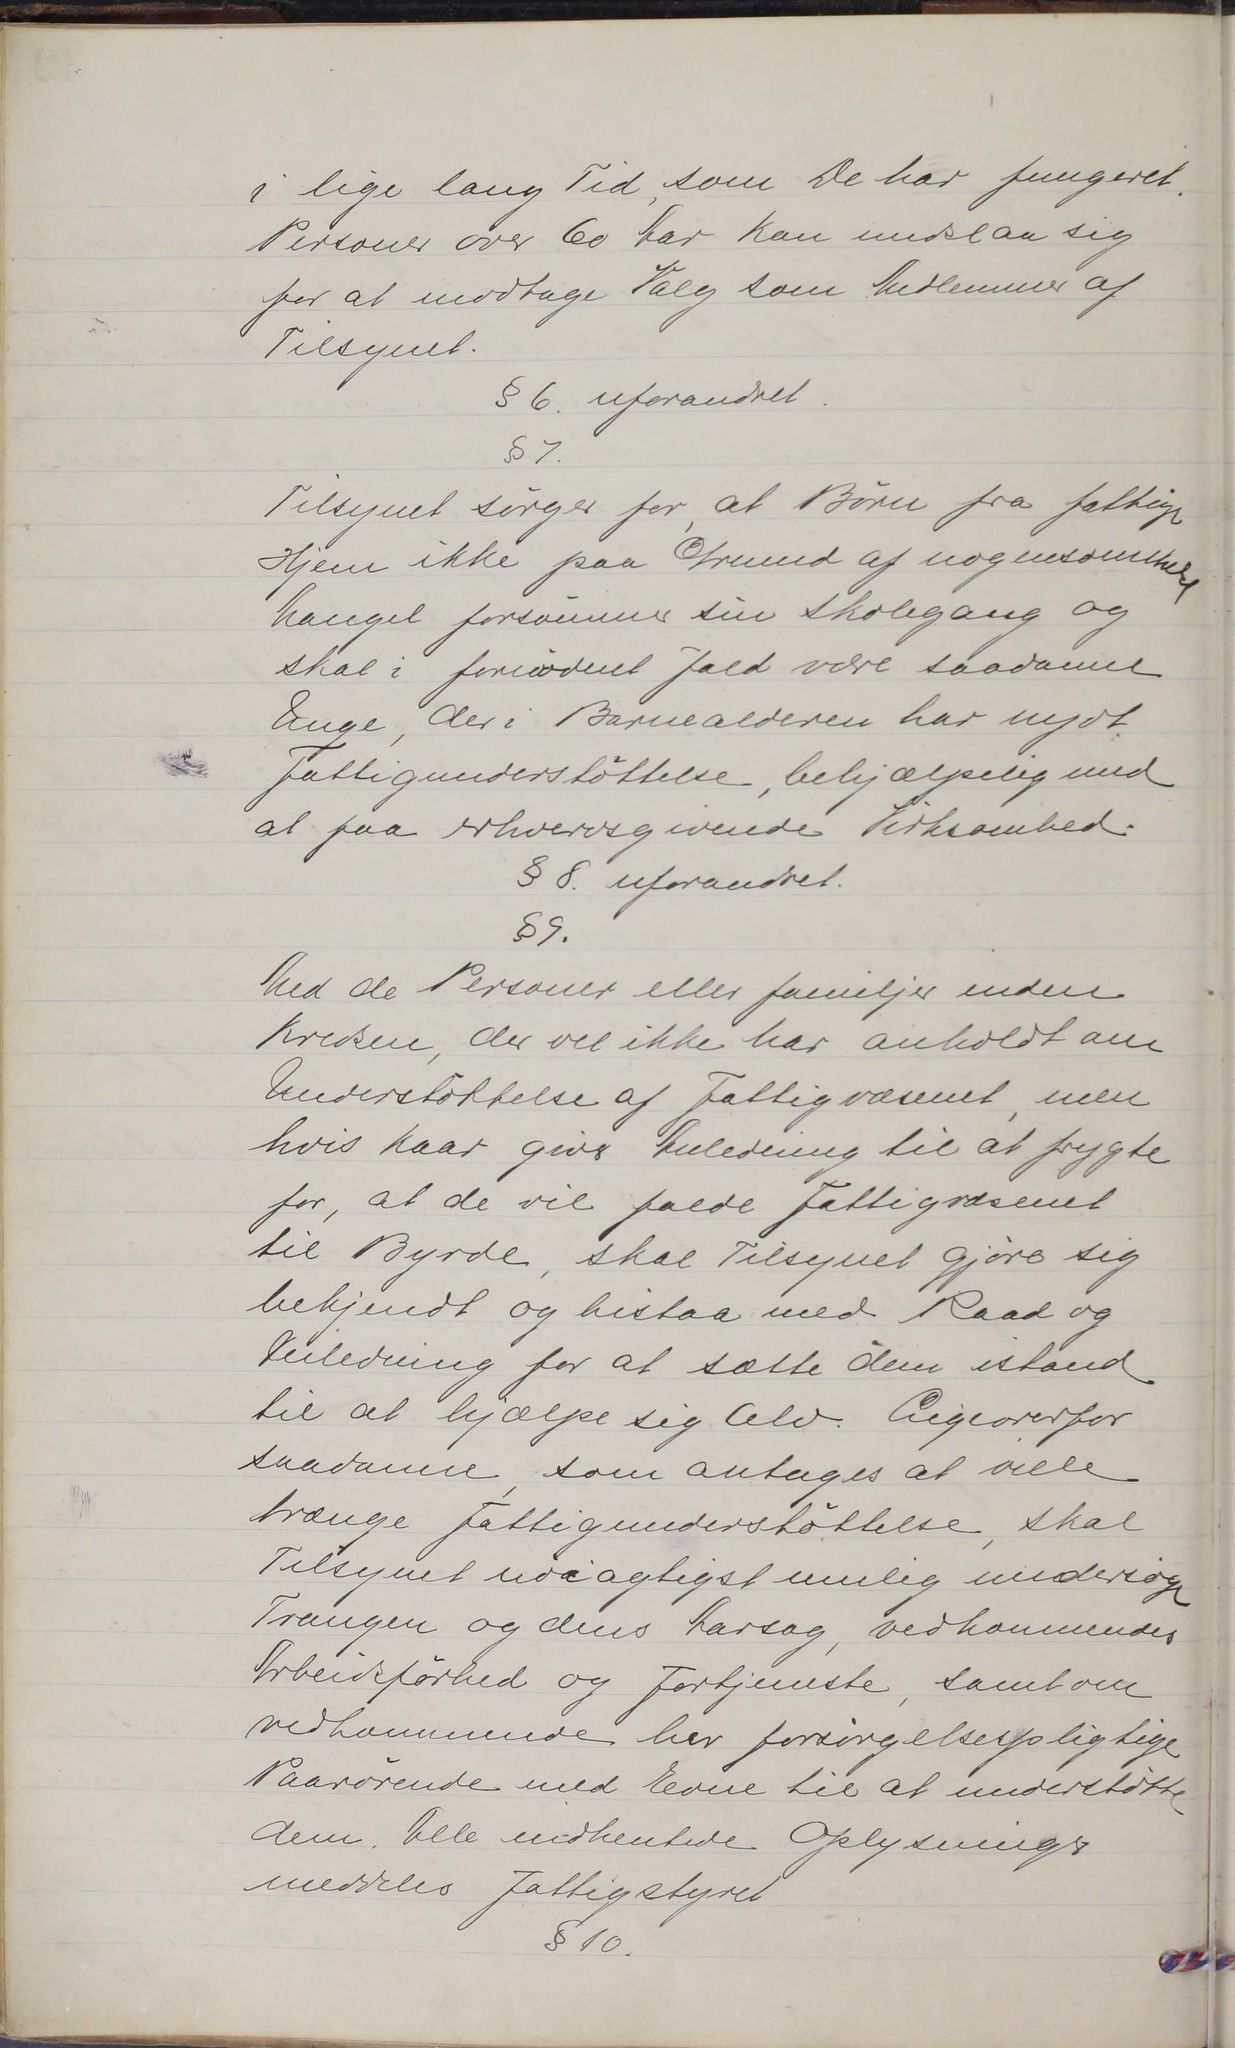 i lige lang Tid, som De har fungeret.
Personer over 60 Aar kan undslaa sig
for at modtage Valg som Medlemmer af
Tilsynet.
§ 6. uforandret.
§ 7.
Tilsynet sörger for, at Börn fra fattige
Hjem ikke paa Grund af nogensomhelst
Mangel forsömmer sin Skolegang og
skal i fornödent Fald være saadanne
Unge, der i Barnealderen har nydt
Fattigunderstöttelse, behjælpelig med
at faa erhvervsgivende Virksomhed.
§ 8. uforandret.
§ 9.
Med de Personer eller familjer inden
Kredsen, der vel ikke har anholdt om
Understöttelse af Fattigvæsenet, men
hvis Kaar giver Anledning til at frygte
for, at de vil falde Fattigvæsenet
til Byrde, skal Tilsynet gjöre sig
bekjendt og bistaa med Raad og
Veiledning for at sætte dem istand
til at hjælpe sig selv. Ligeoverfor
saadanne, som antages at ville
trænge Fattigunderstöttelse, skal
Tilsynet nöiagtigst mulig undersöge
Trangen og dens Aarsag, vedkommendes
Arbeidsförhed og Fortjeneste, samt om
vedkommende har forsörgelsespligtige
Paarörende med Evne til at understötte
dem. Alle indhentede Oplysninger
meddeles Fattigstyret
§ 10.